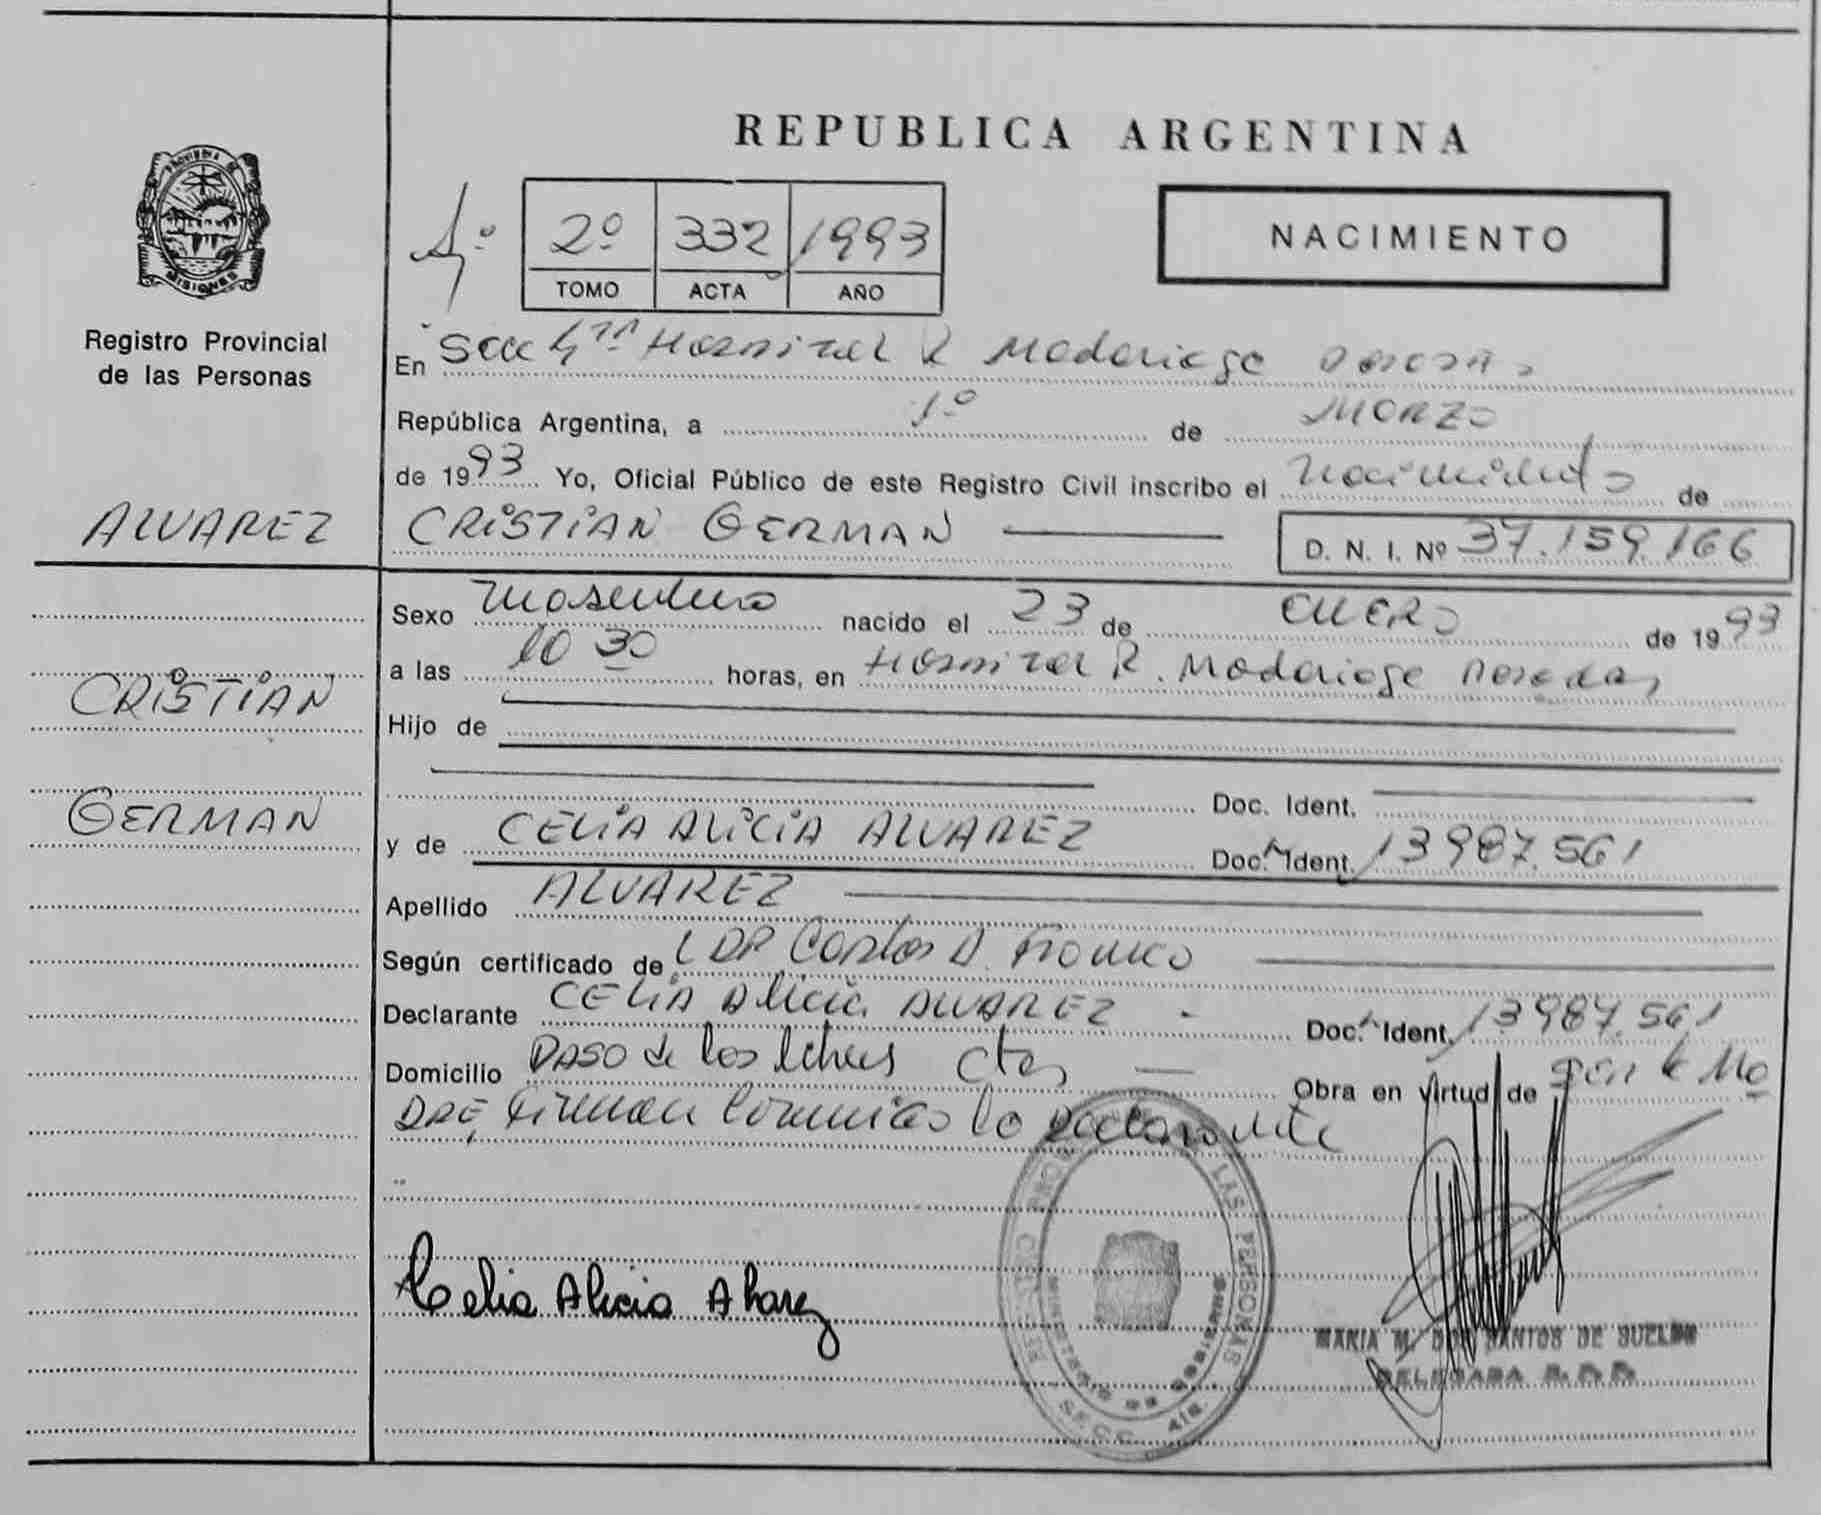 REPUBLICA ARGENTINA
PROVINCIA DE
MISIONES
Registro Provincial
de las Personas
2º 332 1993
TOMO ACTA AÑO
NACIMIENTO
En Secc 4ta Hospital R Madariaga Posadas
República Argentina, a 1º de Marzo
de 1993 Yo, Oficial Público de este Registro Civil inscribo el nacimiento de
ALVAREZ CRISTIAN GERMAN D. N. I. Nº 37.159.166
Sexo Masculino nacido el 23 de ENERO de 1993
CRISTIAN
a las 10 30 horas, en Hospital R. Madariaga Posadas
Hijo de
Doc. Ident.
GERMAN
y de CELIA ALICIA ALVAREZ Doc. Ident. 13987.561
Apellido ALVAREZ
Según certificado de DR Carlos A.
Declarante CELIA Alicia ALVAREZ - Doc. Ident. 13987.561
Domicilio PASO de los libres Ctes Obra en virtud de ser la Ma
DRE, Firman conmigo la declarante
Celia Alicia Alvarez
LAS PERSONAS
MINISTERIO DE GOBIERNO
SECC. 4ta.
MARIA M. DOS SANTOS DE SUELDO
DELEGADA